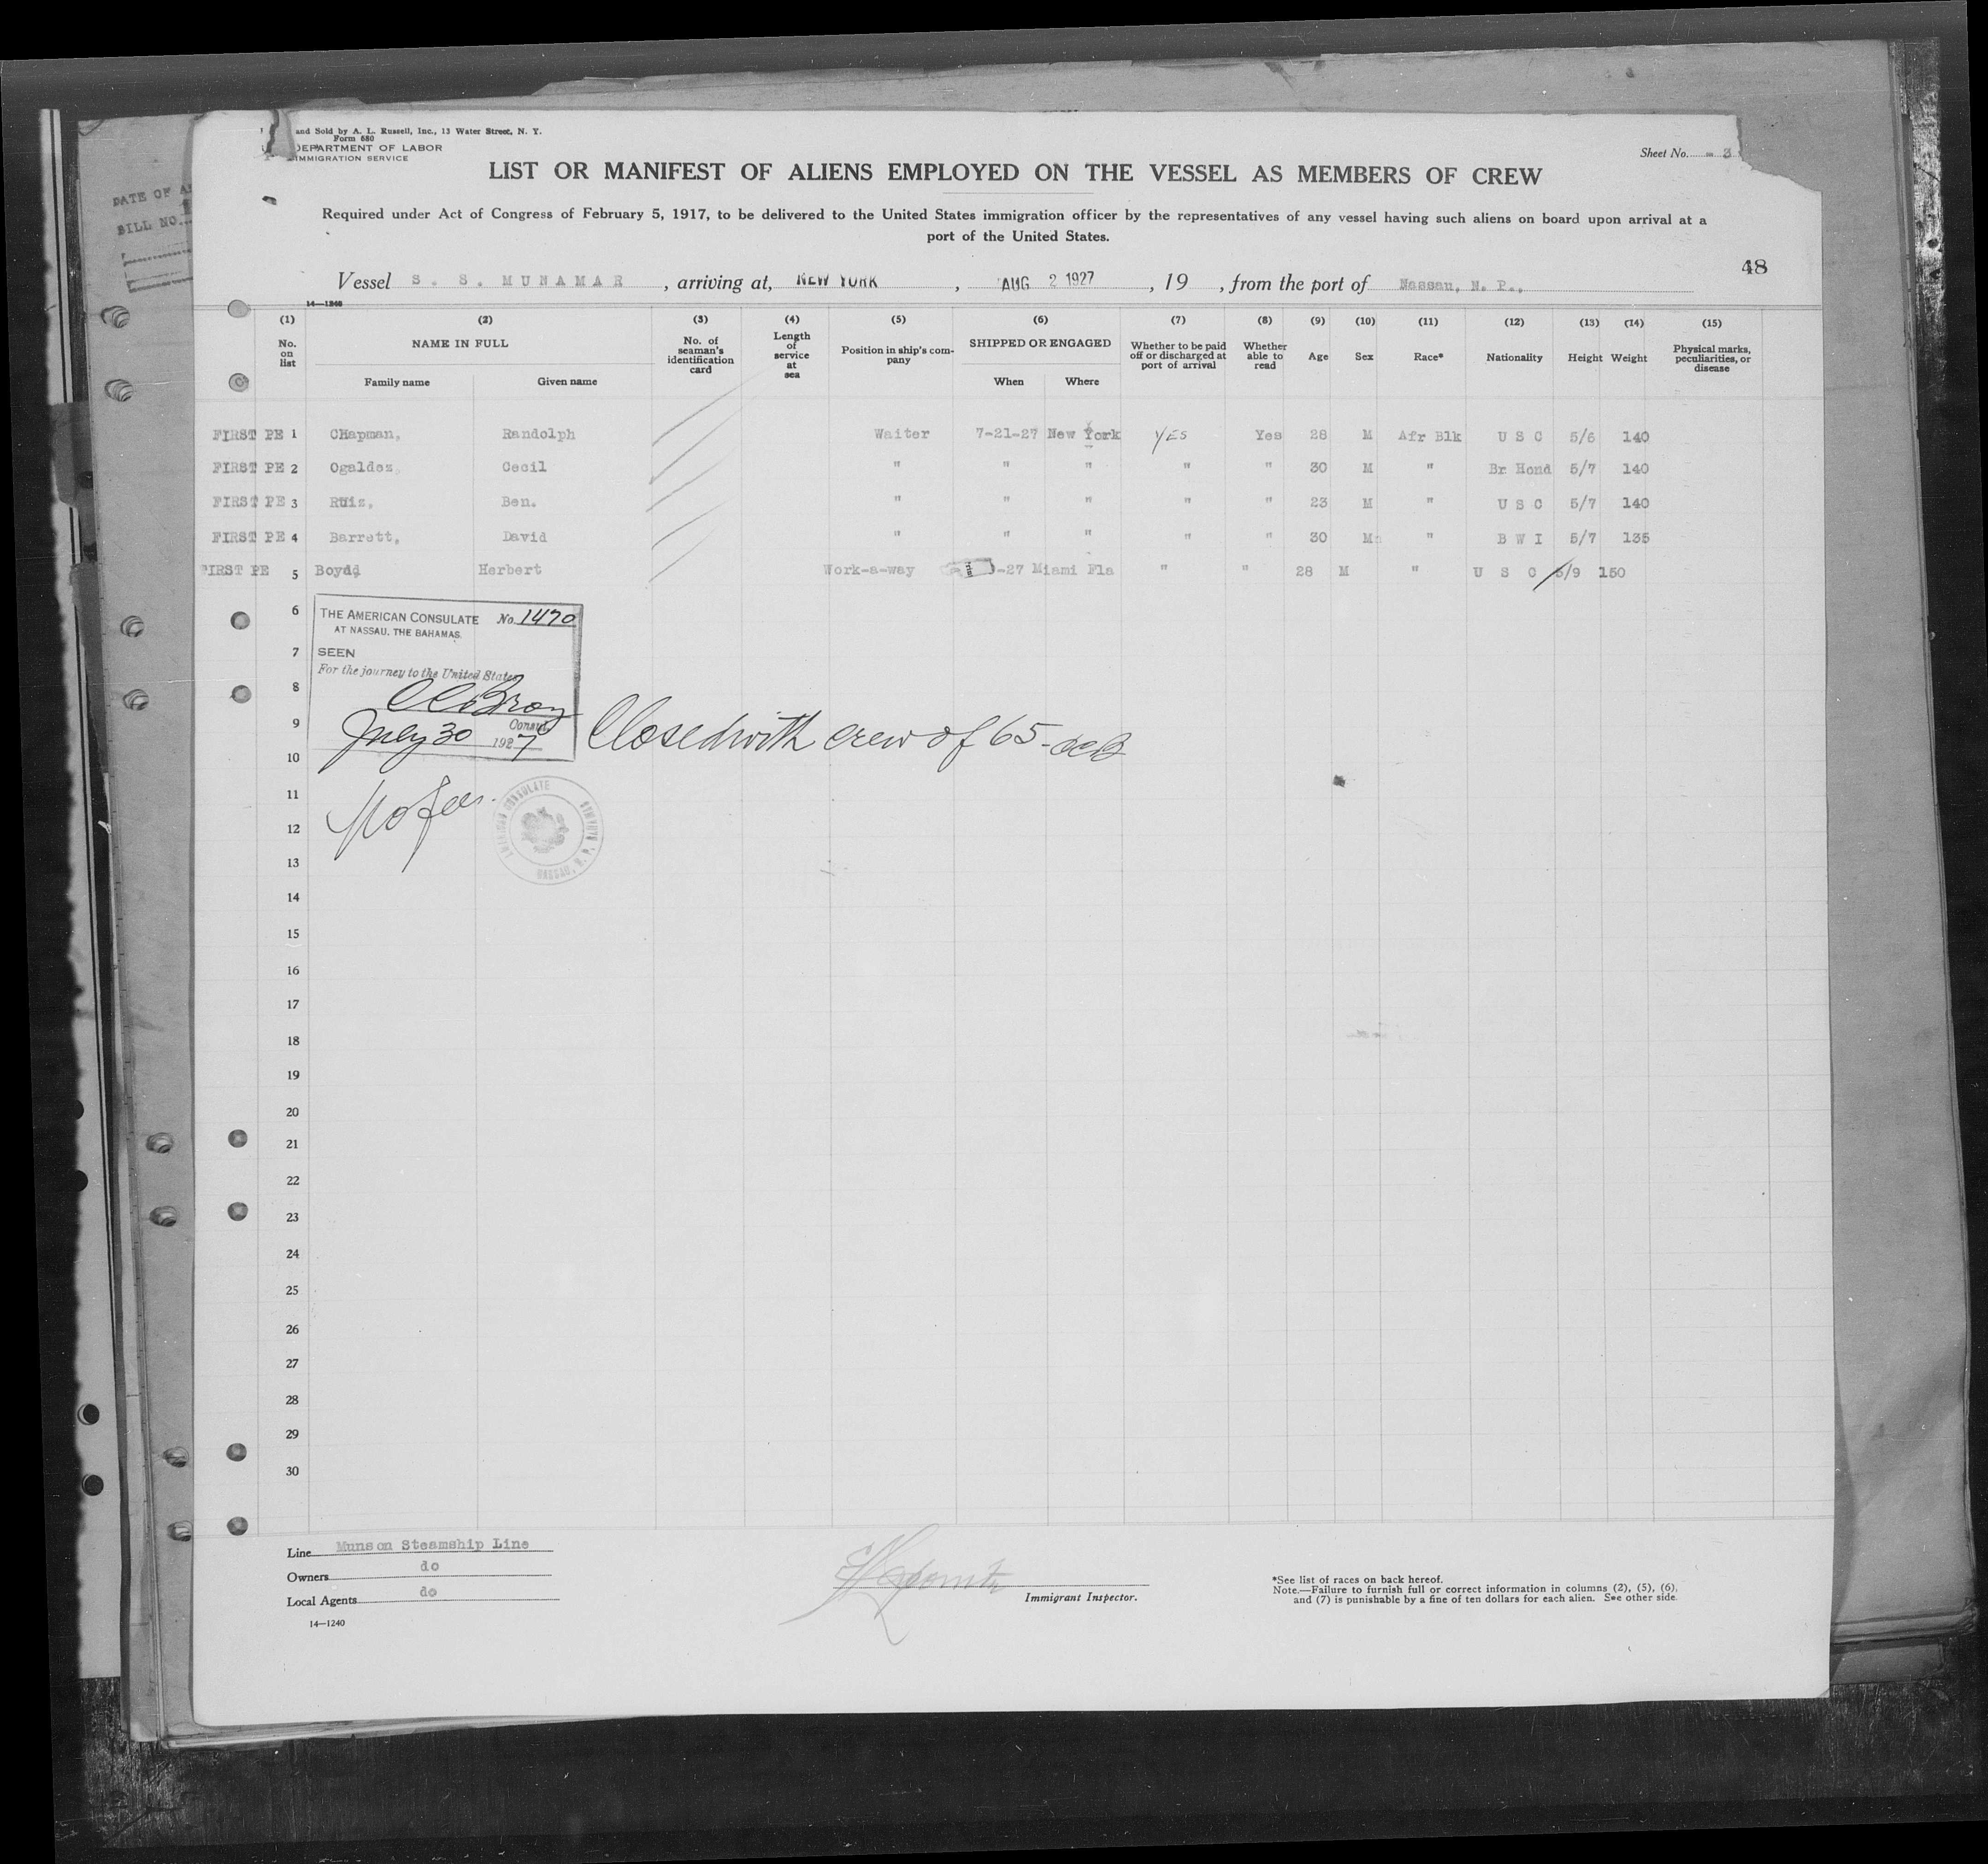 and Sold by A. L. Russell, Inc., 13 Water Street, N. Y.
Form 680
DEPARTMENT OF LABOR
IMMIGRATION SERVICE
Sheet No. - 3
LIST OR MANIFEST OF ALIENS EMPLOYED ON THE VESSEL AS MEMBERS OF CREW
Required under Act of Congress of February 5, 1917, to be delivered to the United States immigration officer by the representatives of any vessel having such aliens on board upon arrival at a
port of the United States.
DATE OF
BILL NO.
48
Vessel S. S. MUNAMAR, arriving at, NEW YORK, AUG 2 1927, 19 , from the port of Nassau, N. P.,
14—1240
(1) (2) (3) (4) (5) (6) (7) (8) (9) (10) (11) (12) (13) (14) (15)
No. on list NAME IN FULL Family name Given name No. of seaman's identification card Length of service at sea Position in ship's company SHIPPED OR ENGAGED When Where Whether to be paid off or discharged at port of arrival Whether able to read Age Sex Race* Nationality Height Weight Physical marks, peculiarities, or disease
FIRST PE 1 CHapman, Randolph Waiter 7-21-27 New York YES Yes 28 M Afr Blk U S C 5/6 140
FIRST PE 2 Ogaldez, Cecil " " " " " 30 M " Br Hond 5/7 140
FIRST PE 3 Ruis, Ben. " " " " " 23 M " U S C 5/7 140
FIRST PE 4 Barrett, David " " " " " 30 M " B W I 5/7 135
FIRST PE 5 Boydd Herbert Work-a-way -27 Miami Fla " " 28 M " U S C 5/9 150
6
THE AMERICAN CONSULATE No. 1470
AT NASSAU, THE BAHAMAS.
7
SEEN
For the journey to the United States
8
9
Consul
July 30 1927
Closed with crew of 65-
10
11
No fee.
AMERICAN CONSULATE NASSAU, N. P. BAHAMAS
12
13
14
15
16
17
18
19
20
21
22
23
24
25
26
27
28
29
30
Line Munson Steamship Line
Owners do
Local Agents do
14—1240
Immigrant Inspector.
*See list of races on back hereof.
Note.—Failure to furnish full or correct information in columns (2), (5), (6),
and (7) is punishable by a fine of ten dollars for each alien. See other side.